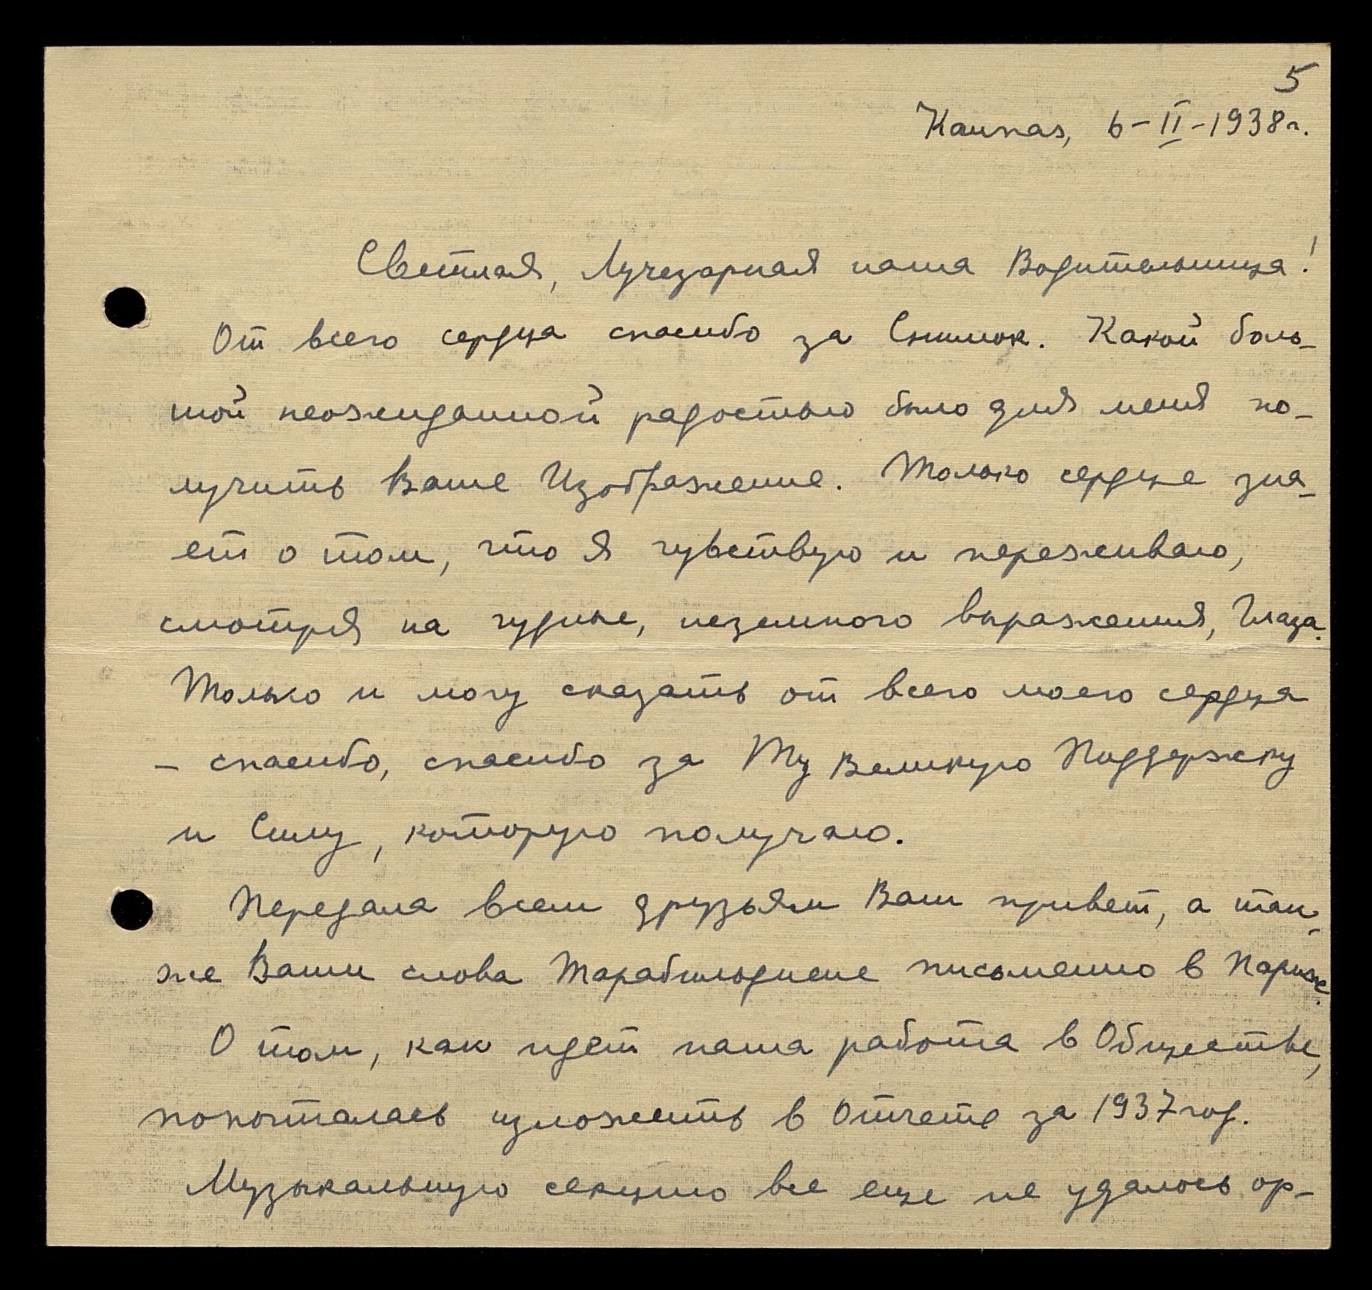 5
Kaunas, 6-II-1938г.
Светлая, Лучезарная наша Водительница!
От всего сердца спасибо за Снимок. Какой боль-
шой неожиданной радостью было для меня по-
лучить Ваше Изображение. Только сердце зна-
ет о том, что я чувствую и переживаю,
смотря на чудные, неземного выражения, Глаза.
Только и могу сказать от всего моего сердца
- спасибо, спасибо за Ту Великую Поддержку
и Силу, которую получаю.
Передала всем друзьям Ваш привет, а так-
же Ваши слова Тарабильдиене письменно в Париж.
О том, как идет наша работа в Обществе,
попыталась изложить в Отчете за 1937 год.
Музыкальную секцию все еще не удалось ор-